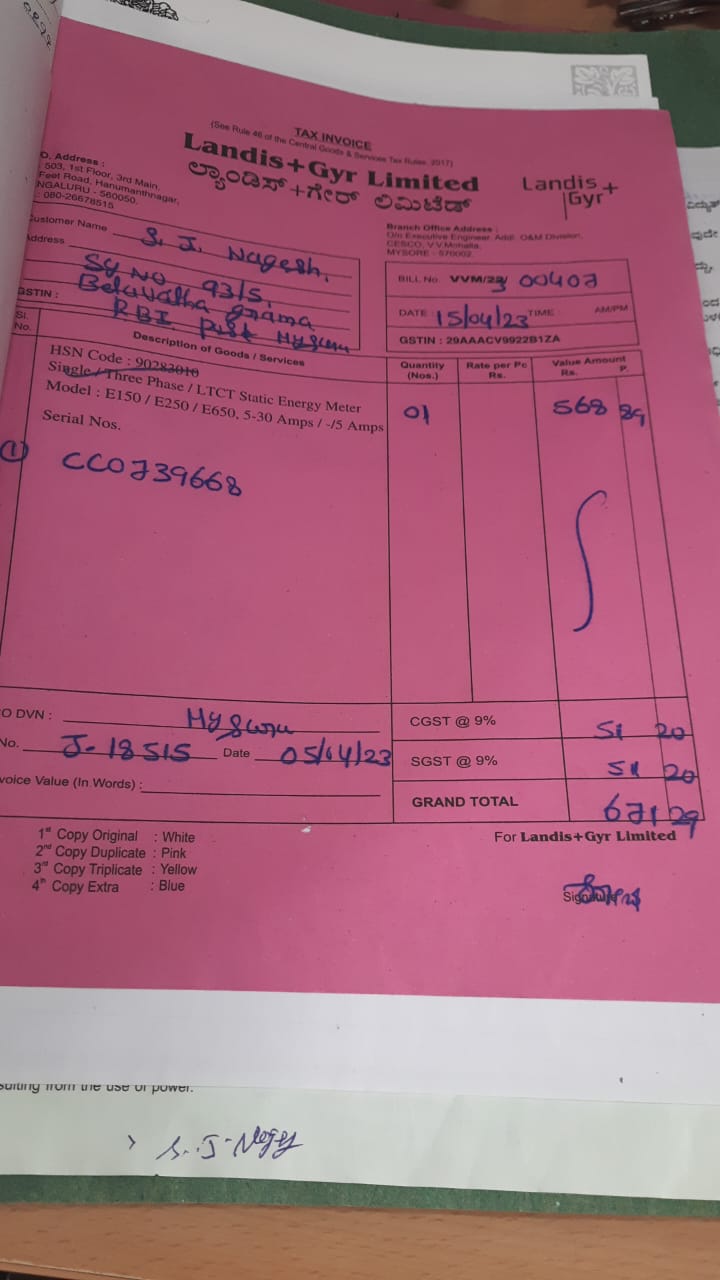 TAX INVOICE
(See Rule 46 of the Central Goods & Services Tax Rules, 2017)
Landis+Gyr Limited
ಲ್ಯಾಂಡಿಸ್+ಗೇರ್ ಲಿಮಿಟೆಡ್
Landis+
Gyr
O. Address :
503, 1st Floor, 3rd Main,
Feet Road, Hanumanthnagar,
NGALURU - 560050.
: 080-26678515
Branch Office Address :
O/o Executive Engineer, Addl. O&M Division,
CESCO, V.V.Mohalla,
MYSORE - 570002.
ustomer Name S. J. Nagesh,
Address Sy No. 93/5,
Belavatha grama
GSTIN : RBI Post Mysuru
BILL No. VVM/23/ 00407
DATE : 15/04/23 TIME : AM/PM
GSTIN : 29AAACV9922B1ZA
Sl. No. Description of Goods / Services Quantity (Nos.) Rate per Pc Rs. Value Amount Rs. P.
HSN Code : 90283010
Single / Three Phase / LTCT Static Energy Meter
Model : E150 / E250 / E650, 5-30 Amps / -/5 Amps 01 568 89
Serial Nos.
① CC0739668
O DVN : Mysuru CGST @ 9% 51 20
No. J-18515 Date 05/04/23 SGST @ 9% 51 20
voice Value (In Words) : GRAND TOTAL 671 29
1st Copy Original : White
2nd Copy Duplicate : Pink
3rd Copy Triplicate : Yellow
4th Copy Extra : Blue
For Landis+Gyr Limited
Signature
sulting from the use of power.
S. J. Nagesh